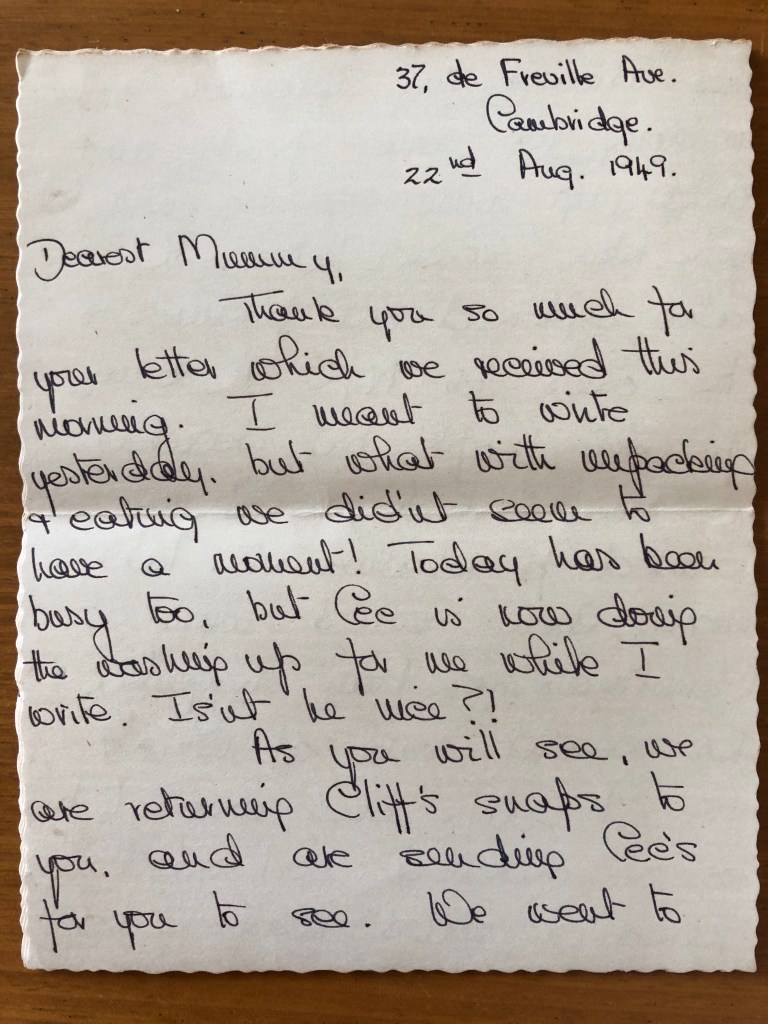 37, de Freville Ave.
Cambridge.
22nd Aug. 1949.
Dearest Mummy,
Thank you so much for
your letter which we received this
morning. I meant to write
yesterday, but what with unpacking
& eating we did'nt seem to
have a moment! Today has been
busy too, but Cee is now doing
the washing up for me while I
write. Is'nt he nice?!
As you will see, we
are returning Cliff's snaps to
you, and are sending Cee's
for you to see. We went to